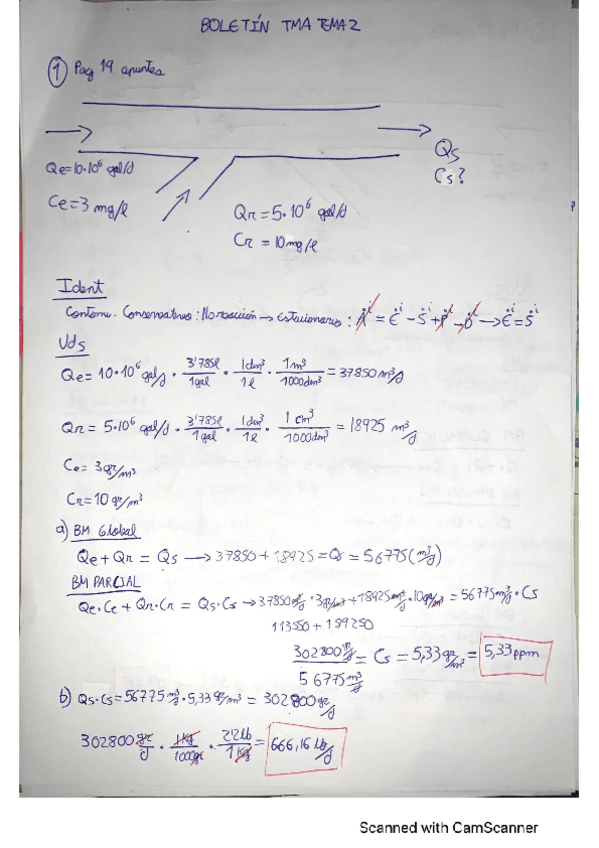 BOLETÍN TMA TEMA 2
① Pag 19 apuntes
Qe=10·10⁶ gal/d
Ce=3 mg/l
Qs
Cs?
Qr=5·10⁶ gal/d
Cr = 10mg/l
Ident
Contami. Conservativo: No reacción → estacionario: A = E - S + P - D → E = S
Uds
Qe= 10·10⁶ gal/d · 3'785l/1gal · 1dm³/1l · 1m³/1000dm³ = 37850 m³/d
Qr= 5·10⁶ gal/d · 3'785l/1gal · 1dm³/1l · 1cm³/1000dm³ = 18925 m³/d
Ce= 3gr/m³
Cr=10gr/m³
a) BM Global
Qe + Qr = Qs → 37850 + 18925 = Q = 56775 (m³/d)
BM PARCIAL
Qe·Ce + Qr·Cr = Qs·Cs → 37850m³/d · 3gr/m³ + 18925m³/d · 10gr/m³ = 56775m³/d · Cs
113550 + 189250
302800 gr/d / 56775 m³/d = Cs = 5,33 gr/m³ = 5,33 ppm
b) Qs·Cs = 56775 m³/d · 5,33 gr/m³ = 302800gr/d
302800 gr/d · 1kg/1000gr · 2'2Lb/1kg = 666,16 Lb/d
Scanned with CamScanner